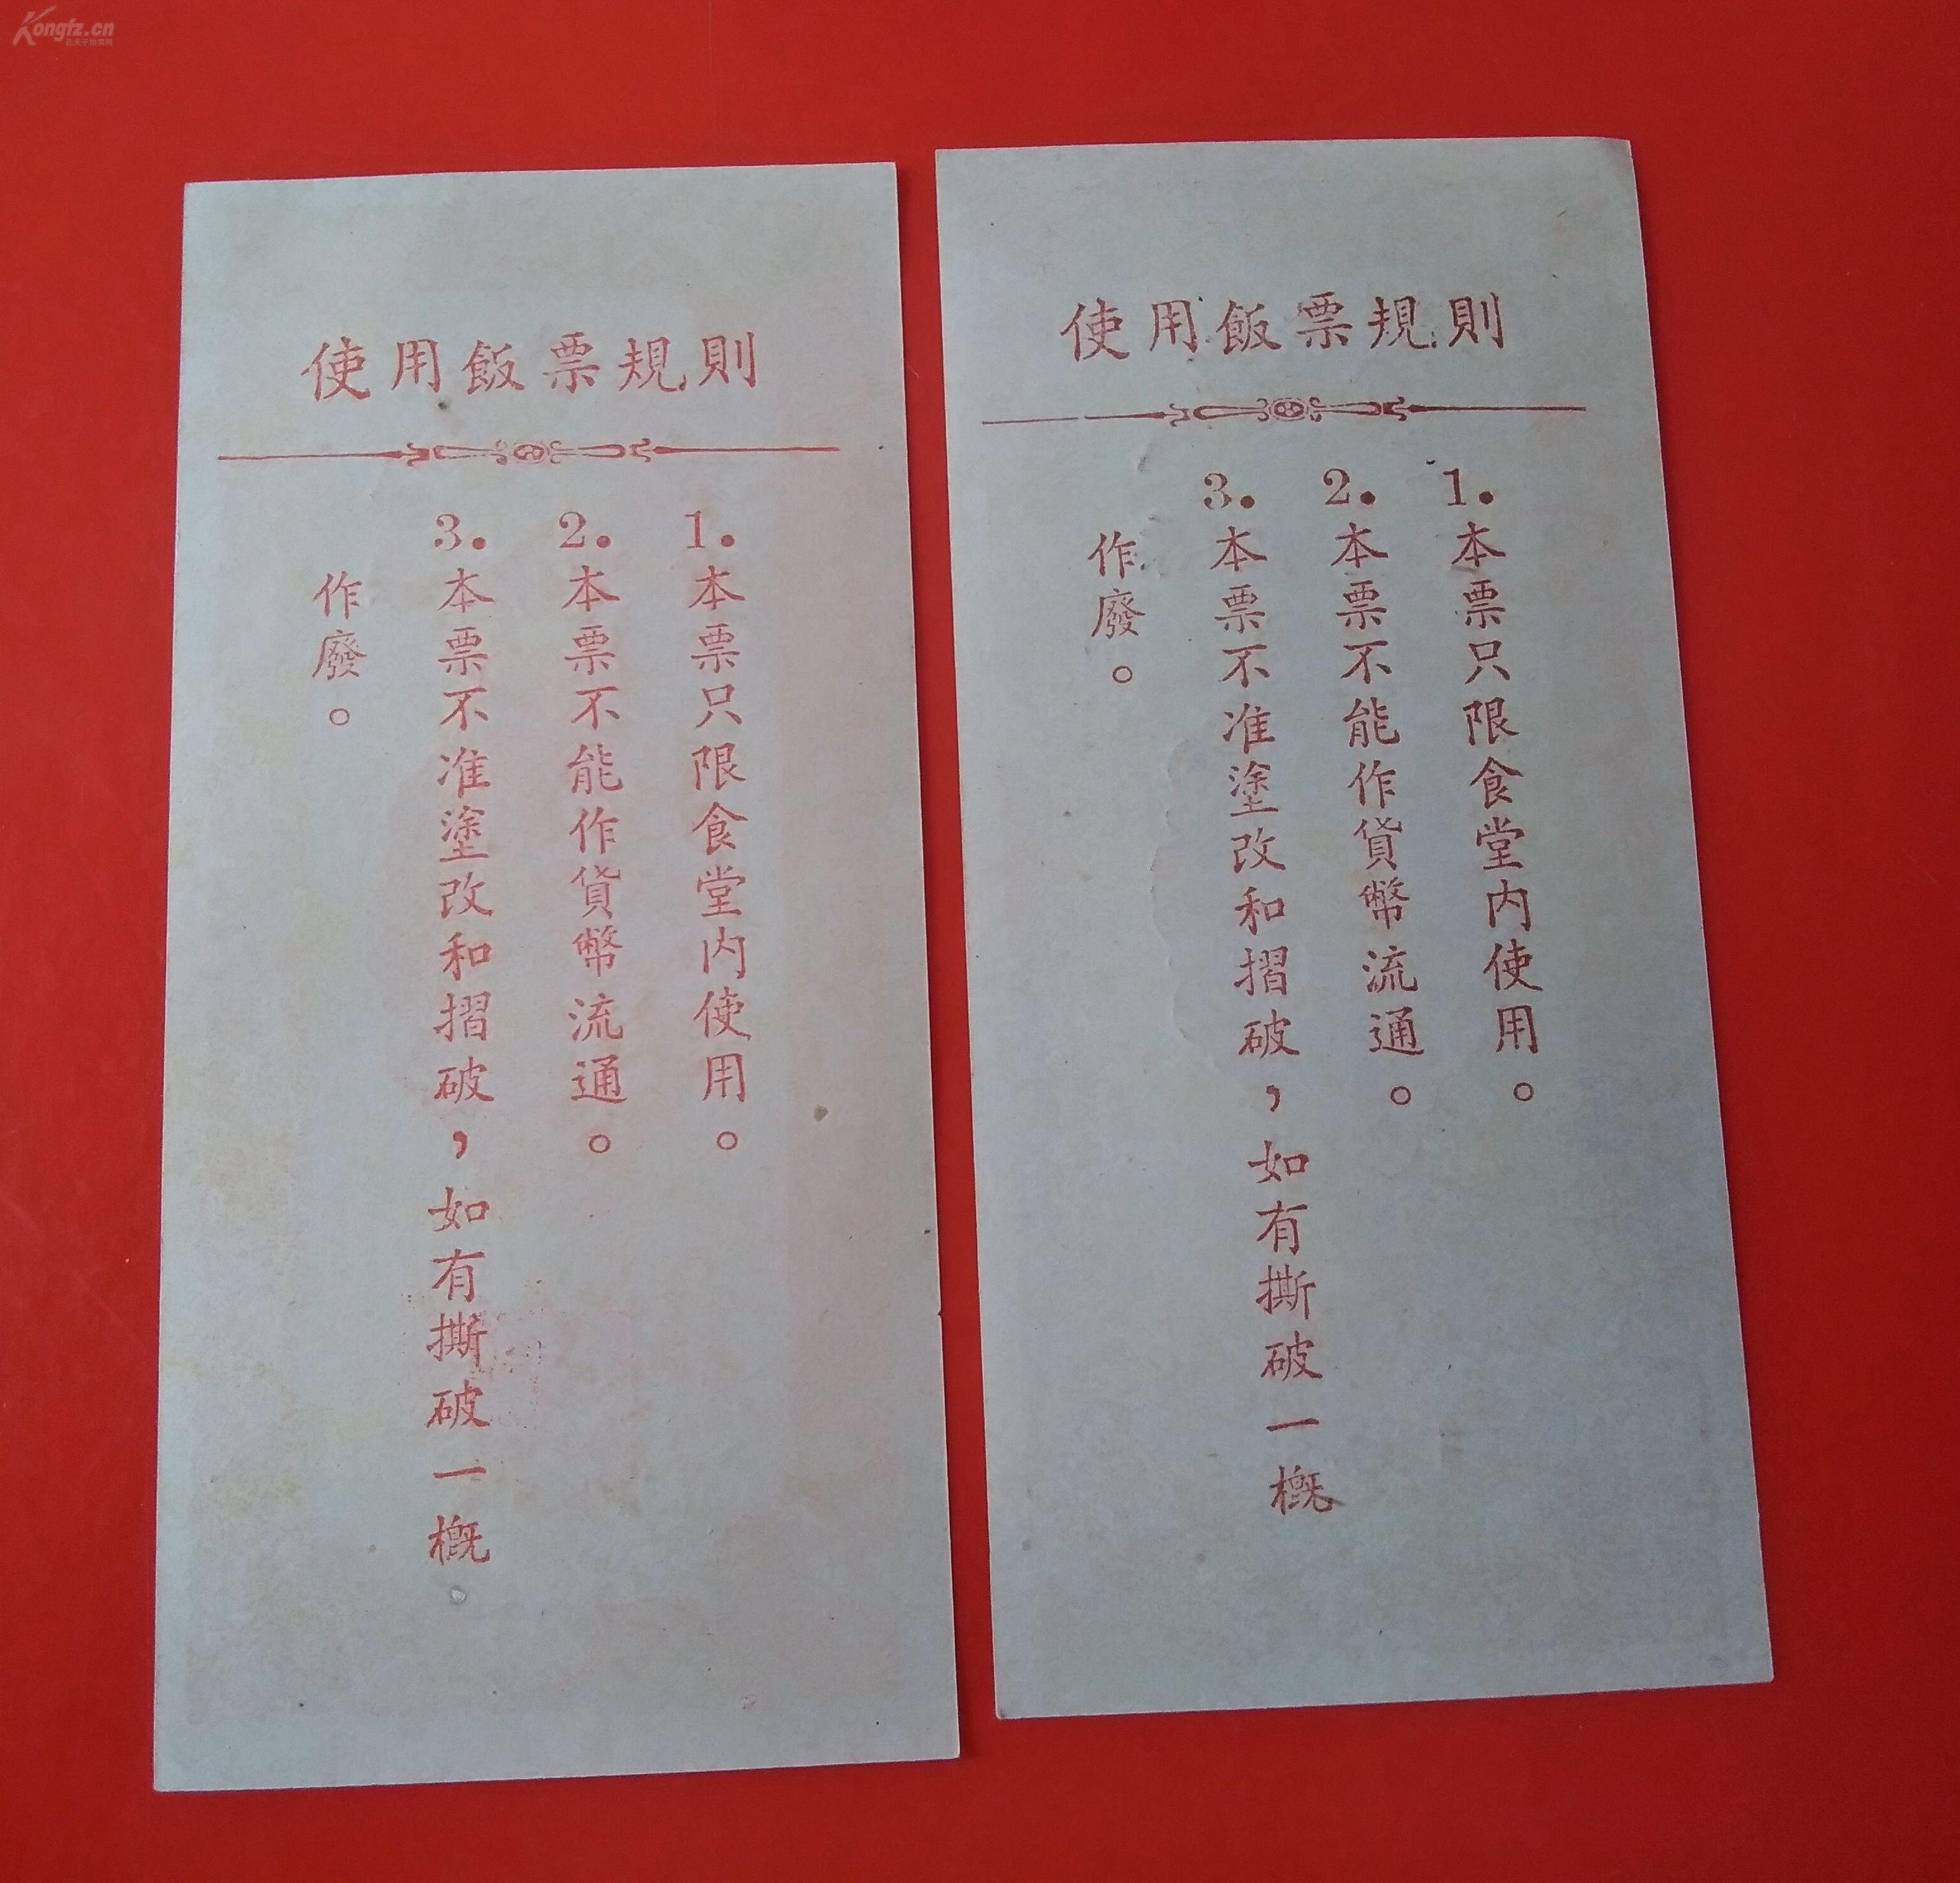 Kongfz.cn
使用飯票規則
1.本票只限食堂内使用。
2.本票不能作貨幣流通。
3.本票不准塗改和摺破，如有撕破一概
作廢。
使用飯票規則
1.本票只限食堂内使用。
2.本票不能作貨幣流通。
3.本票不准塗改和摺破，如有撕破一概
作廢。